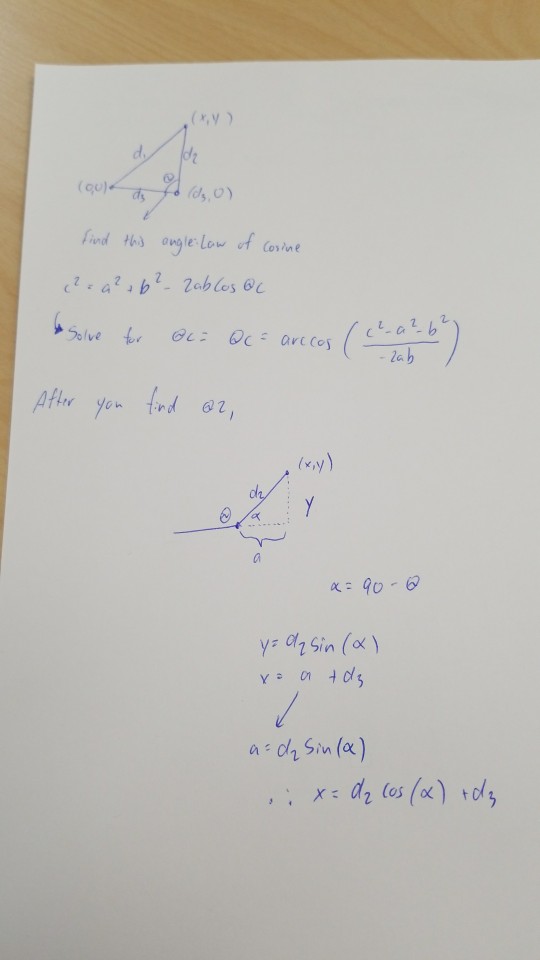 (x,y)
d₁
d₂
θ
(0,0)
d₃
(d₃,0)
Find this angle: Law of cosine
c² = a² + b² - 2ab cos θc
Solve for θc = θc = arccos ( (c² - a² - b²) / (-2ab) )
After you find θ2,
(x,y)
d₂
θ
α
y
a
α = 90 - θ
y = d₂ sin(α)
x = a + d₃
a = d₂ sin(α)
∴ x = d₂ cos(α) + d₃